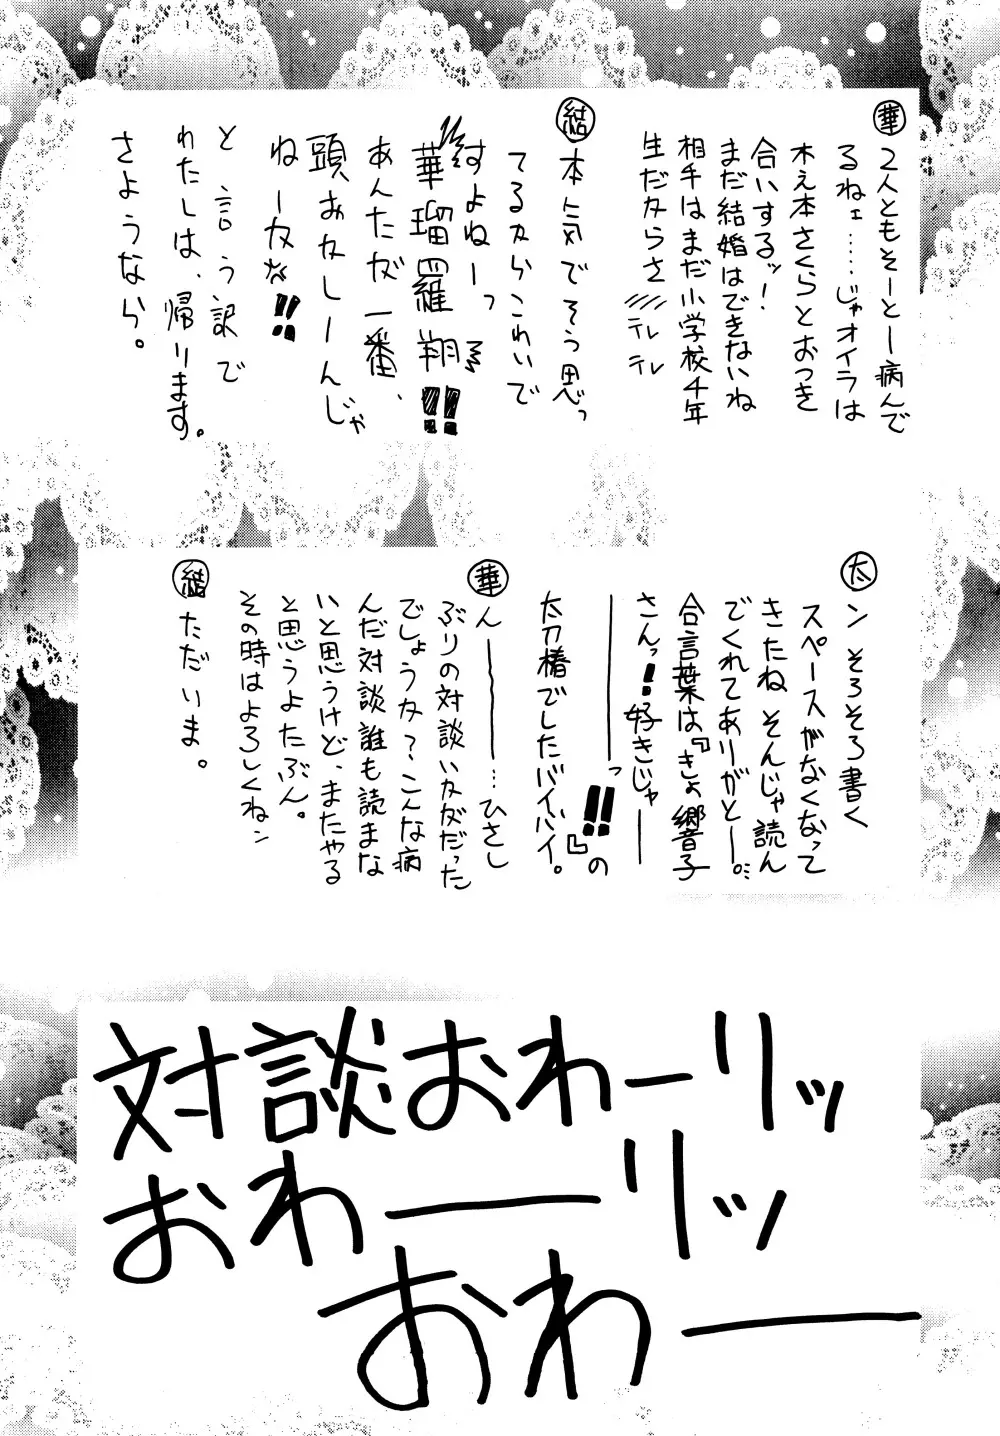 華 2人ともそーとー病んで
るねェ……じゃオイラは
木之本さくらとおつき
合いするッ！
まだ結婚はできないね
相手はまだ小学校4年
生だからさ テレテレ
結 本気でそう思っ
てるからこわいで
すよねーっ
華瑠羅翔!!
あんたが一番、
頭おかしーんじゃ
ねーか!!
と言う訳で
わたしは、帰ります。
さようなら。
太 ン そろそろ書く
スペースがなくなって
きたね そんじゃ読ん
でくれてありがとー。
合言葉は『きょ響子
さんっ!!好きじゃー
ーーーーーっ!!』の
太刀椿でしたバイバイ。
華 んーーー…ひさし
ぶりの対談いかがだった
でしょうか？こんな病
んだ対談誰も読まな
いと思うけど、またやる
と思うよたぶん。
その時はよろしくねン
結 ただいま。
対談おわーリッ
おわーリッ
おわー